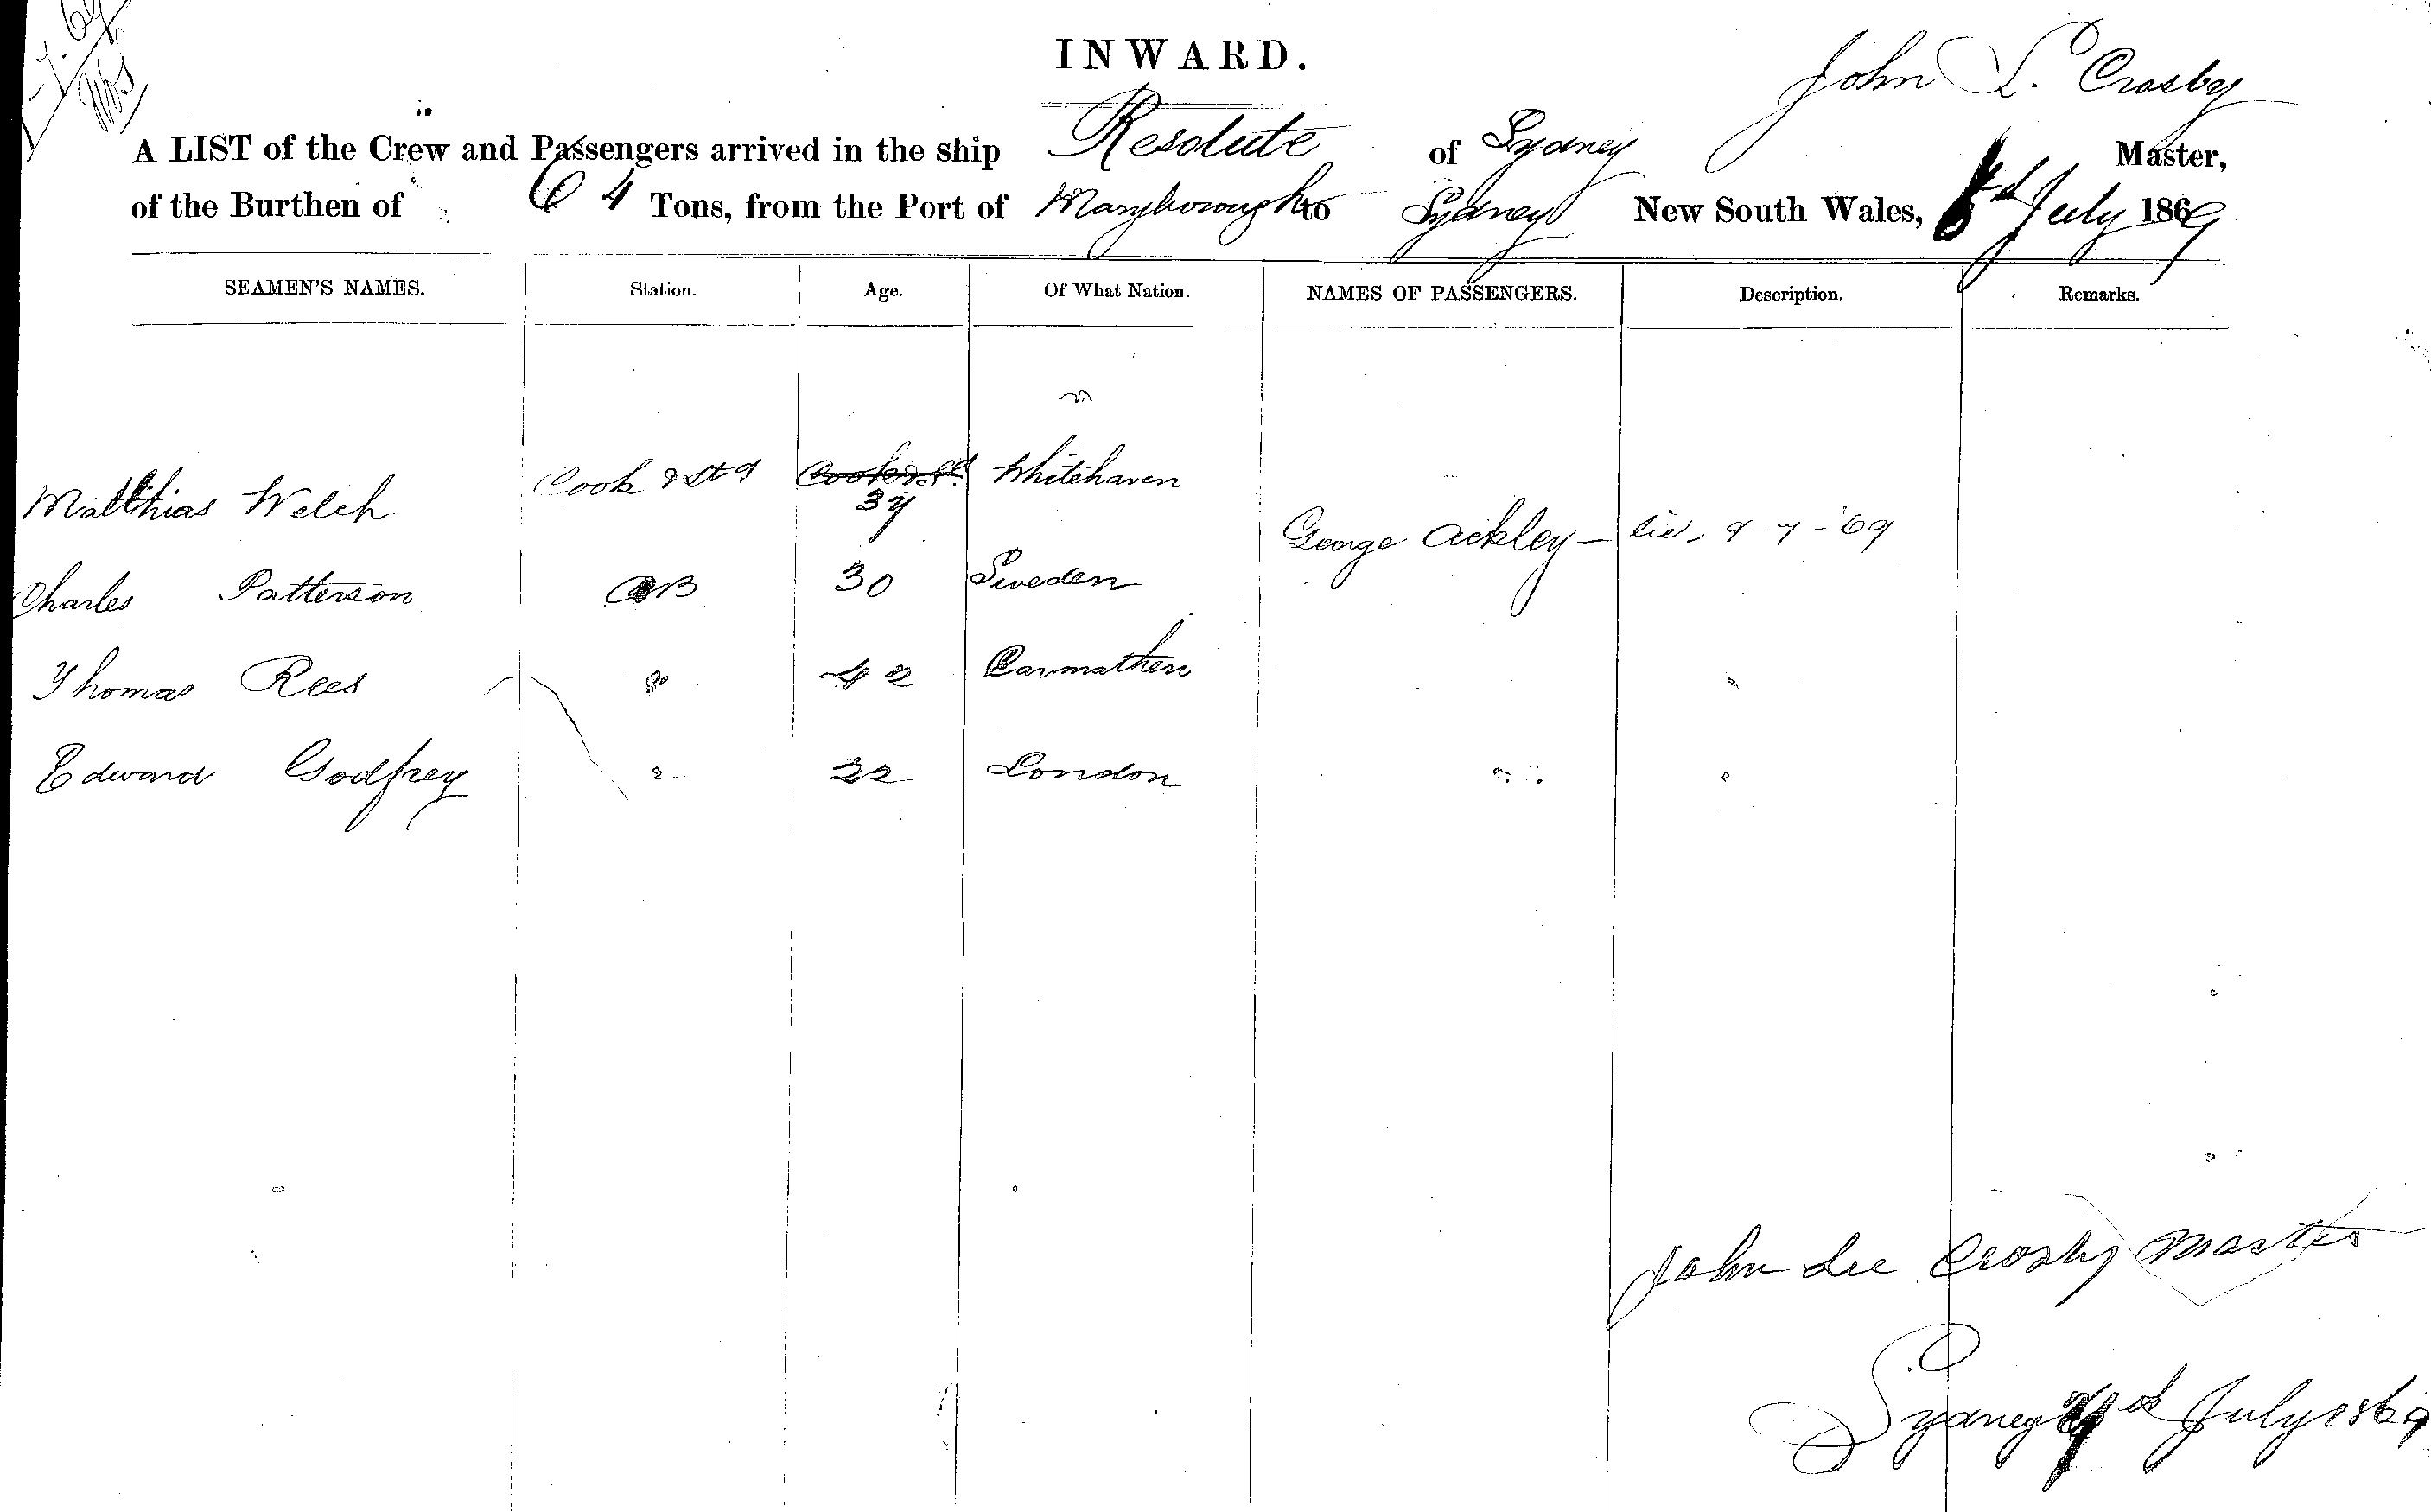 INWARD.
John L. Crosby
A LIST of the Crew and Passengers arrived in the ship Resolute of Sydney Master,
of the Burthen of 64 Tons, from the Port of Maryborough to Sydney New South Wales, July 1869
SEAMEN'S NAMES. Station. Age. Of What Nation. NAMES OF PASSENGERS. Description. Remarks.
Matthias Welch Cook & Std Whitehaven
George Ackley
Charles Patterson AB 30 Sweden
Thomas Rees 42 Carmathen
Edward Godfrey 22 London
John Lee Crosby Master
Sydney July 1869